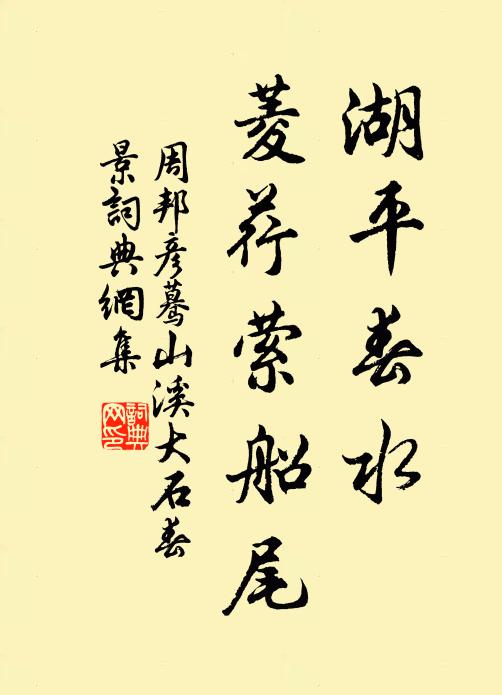 湖平春水
菱荇萦船尾
周邦彦蓦山溪大石春
景詞典網集
詞典网印